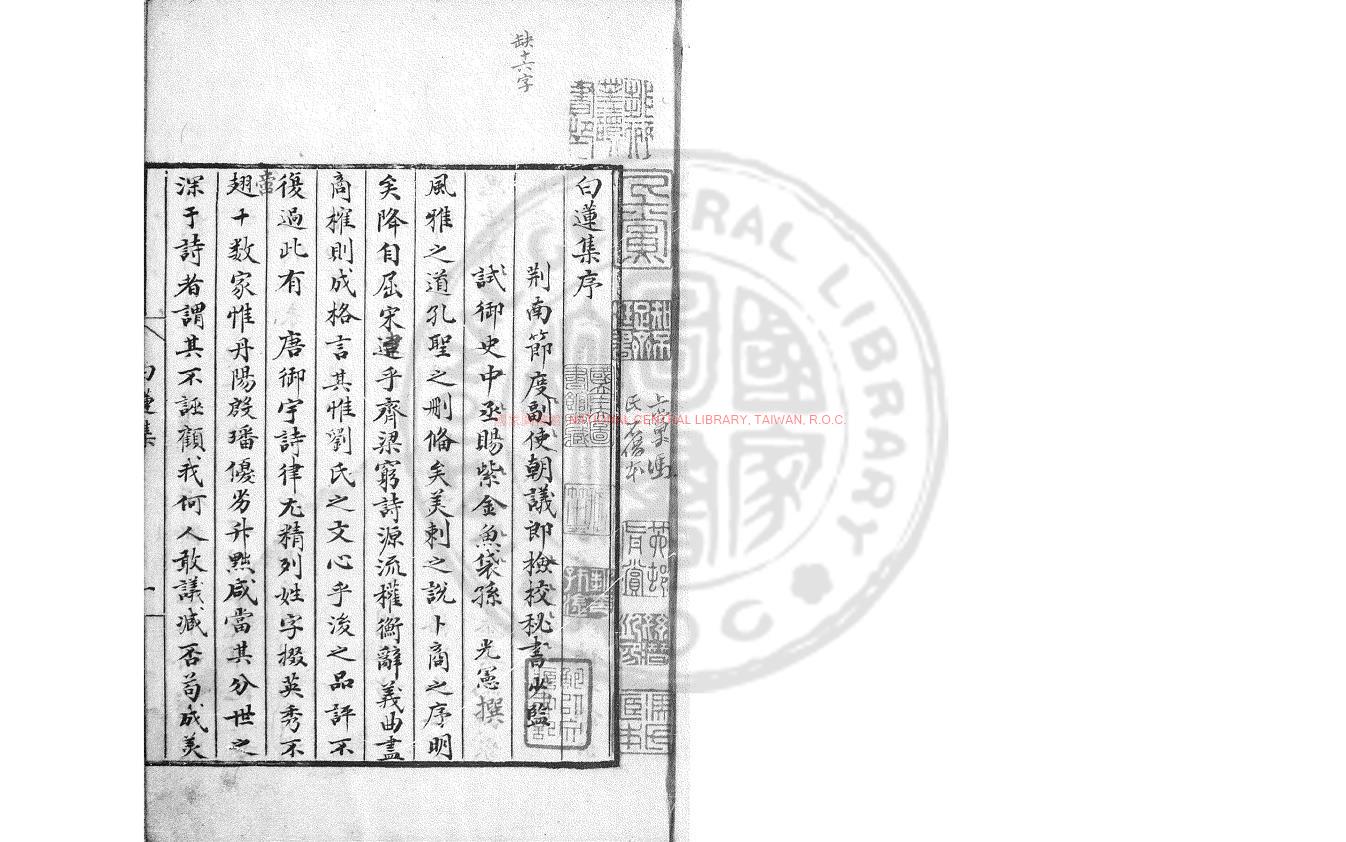 缺十六字
白蓮集序
荆南節度副使朝議郎檢校秘書少監
試御史中丞賜紫金魚袋孫 光憲撰
風雅之道孔聖之刪俻矣美刺之說卜商之序明
矣降自屈宋逮乎齊梁窮詩源流權衡辭義曲盡
商榷則成格言其惟劉氏之文心乎後之品評不
復過此有 唐御宇詩律尤精列姓字掇英秀不
啻
翅十数家惟丹陽殷璠優劣升黜咸當其分世之
深于詩者謂其不誣顧我何人敢議臧否苟成美
白蓮集
一
NATIONAL CENTRAL LIBRARY, TAIWAN, R.O.C.